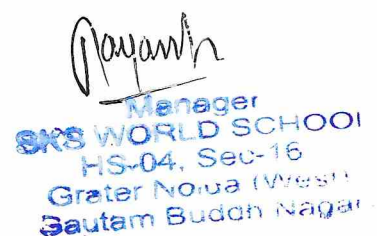 Manager
SKS WORLD SCHOOL
HS-04, Sec-16
Grater Noida (West)
Gautam Buddh Nagar